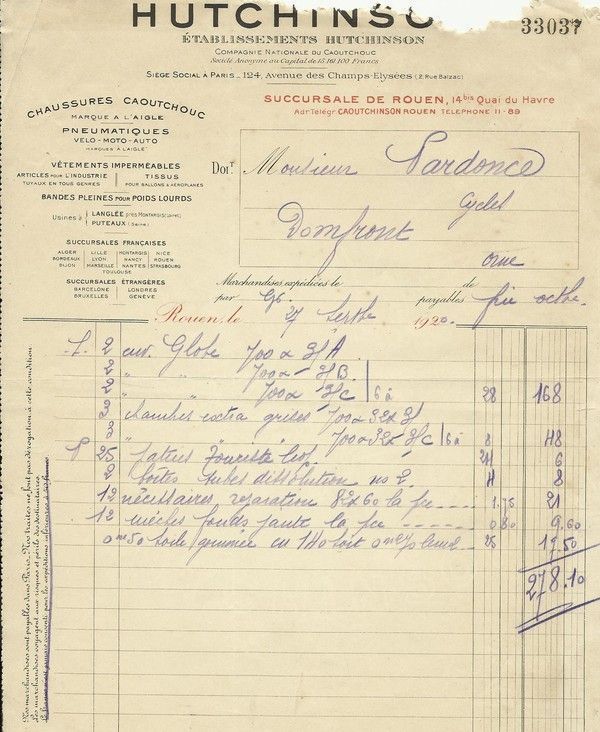 HUTCHINSO
33037
ÉTABLISSEMENTS HUTCHINSON
COMPAGNIE NATIONALE DU CAOUTCHOUC
Société Anonyme au Capital de 15.161.100 Francs
SIÈGE SOCIAL À PARIS _ 124, Avenue des Champs-Elysées (2, Rue Balzac)
CHAUSSURES CAOUTCHOUC
MARQUE A L'AIGLE
PNEUMATIQUES
VELO-MOTO-AUTO
MARQUES À L'AIGLE
VÊTEMENTS IMPERMÉABLES
ARTICLES POUR L'INDUSTRIE
TUYAUX EN TOUS GENRES
TISSUS
POUR BALLONS & AÉROPLANES
BANDES PLEINES POUR POIDS LOURDS
Usines à
LANGLÉE près MONTARGIS (Loiret)
PUTEAUX (Seine)
SUCCURSALES FRANÇAISES
ALGER LILLE MONTARGIS NICE
BORDEAUX LYON NANCY ROUEN
DIJON MARSEILLE NANTES STRASBOURG
TOULOUSE
SUCCURSALES ÉTRANGÈRES
BARCELONE LONDRES
BRUXELLES GENÈVE
SUCCURSALE DE ROUEN, 14bis Quai du Havre
Adr Télégr. CAOUTCHINSON ROUEN TELEPHONE 11-89
DOIT Monsieur Pardonce
Cycles
Domfront
Orne
Marchandises expédiées le de
par payables fin octbre
Rouen, le 27 Septbre 1920.
2 env. Globe 700 x 31 A
2 " " 700 x 31 B
2 " 700 x 31 C 6 à 28 168
3 chambres extra grises 700 x 32 x 31
3 " " 700 x 325 31 C 6 à 8 48
25 patins Touriste 24 6
2 boîtes tubes dissolution no 2 4 8
12 nécessaires réparation 82 x 60 la pce 1.75 21
12 mèches fonds jante la pce 0 80 9,60
0m50 toile gommée en 140 soit 0m270 25 17.50
278.10
Nos marchandises sont payables dans Paris. Nos traites ne font pas dérogation à cette condition
Les marchandises voyagent aux risques et périls des destinataires.